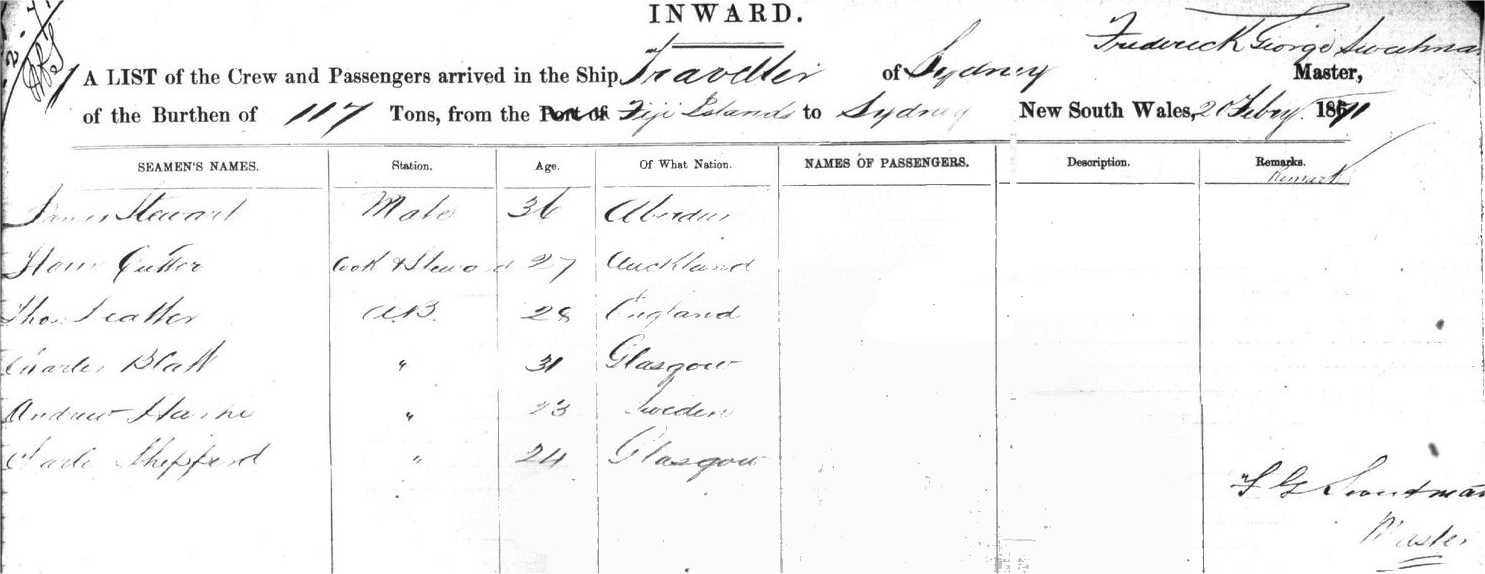 INWARD.
Frederick George
A LIST of the Crew and Passengers arrived in the Ship Traveller of Sydney Master,
of the Burthen of 117 Tons, from the Port of Fiji Islands to Sydney New South Wales, 2 Febry. 1871
SEAMEN'S NAMES. Station. Age. Of What Nation. NAMES OF PASSENGERS. Description. Remarks.
Remark
James Stewart Mate 36
Cook & Steward 27 Auckland
Thos. A.B. 28 England
Charles Blatt " 31 Glasgow
Andrew " 23 Sweden
Shepperd " 24 Glasgow
F G
Master